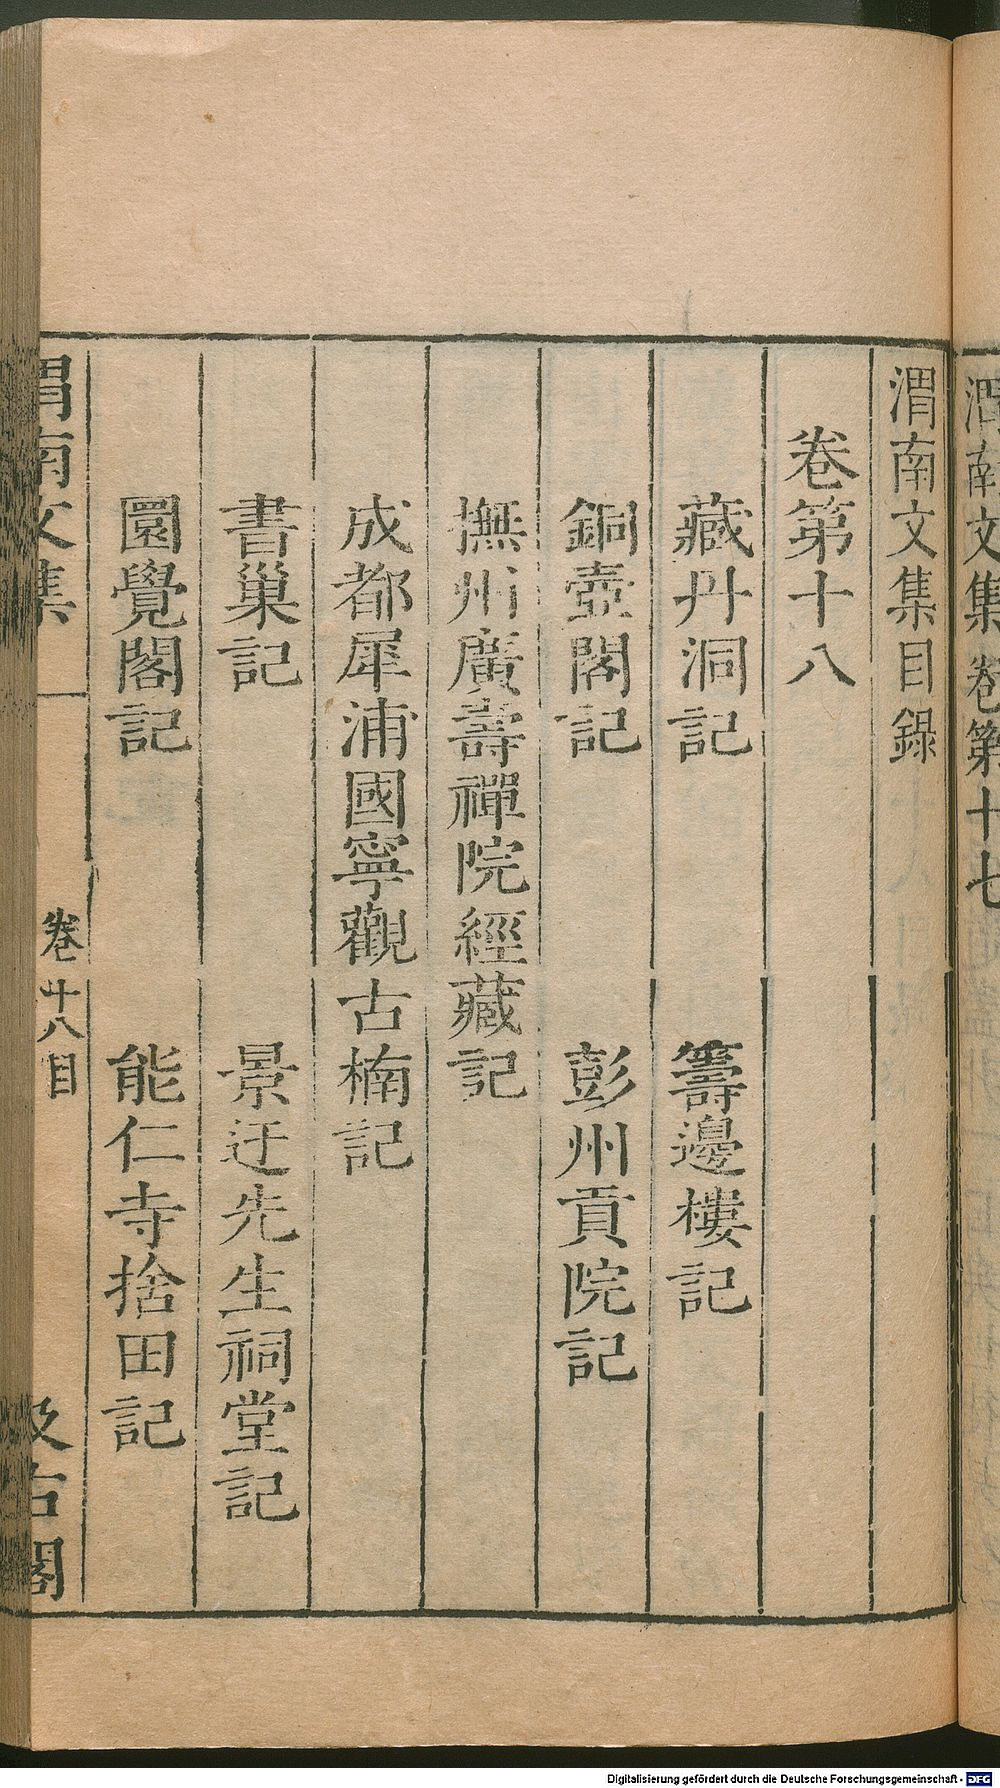 渭南文集卷第十七
渭南文集目錄
卷第十八
藏丹洞記　籌邊樓記
銅壺閣記　彭州貢院記
撫州廣壽禪院經藏記
成都犀浦國寧觀古楠記
書巢記　景迂先生祠堂記
圜覺閣記　能仁寺捨田記
渭南文集　卷十八目　汲古閣
Digitalisierung gefördert durch die Deutsche Forschungsgemeinschaft - DFG